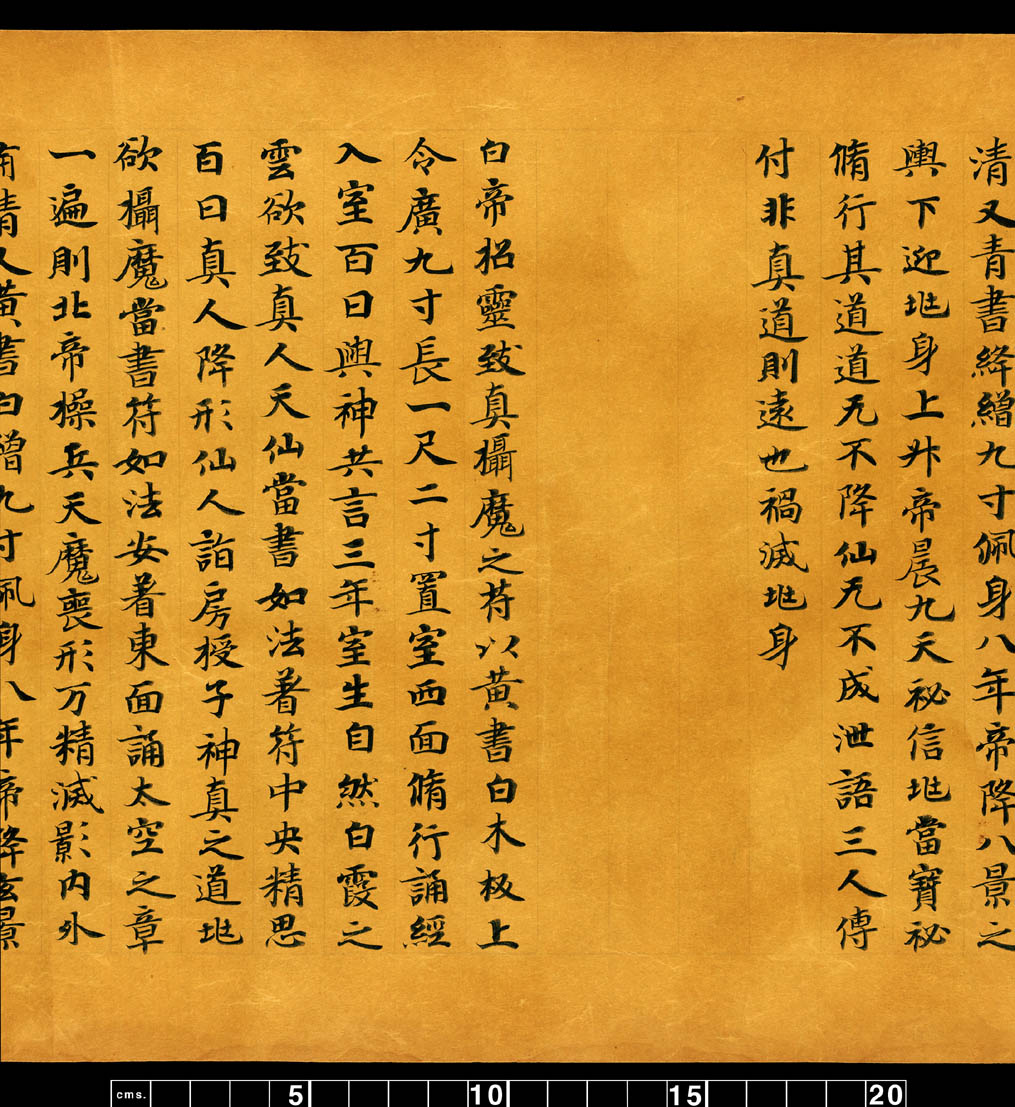 清又青書絳繒九寸佩身八年帝降八景之
輿下迎𡉄身上升帝晨九天祕信𡉄當寶祕
脩行其道道无不降仙无不成泄語三人傳
付非真道則遠也禍滅𡉄身
白帝招靈致真攝魔之符以黃書白木板上
令廣九寸長一尺二寸置室西面脩行誦經
入室百日與神共言三年室生自然白霞之
雲欲致真人天仙當書如法著符中央精思
百日真人降形仙人詣房授子神真之道𡉄
欲攝魔當書符如法安著東面誦太空之章
一遍則北帝操兵天魔喪形万精滅影内外
清又黃書白繒九寸佩身八年帝降玄景